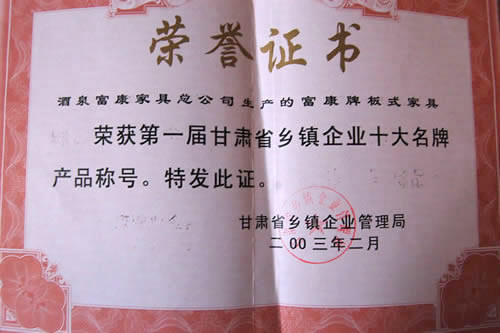 荣誉证书
酒泉富康家具总公司生产的富康牌板式家具
荣获第一届甘肃省乡镇企业十大名牌
产品称号。特发此证。
甘肃省乡镇企业管理局
二00三年二月